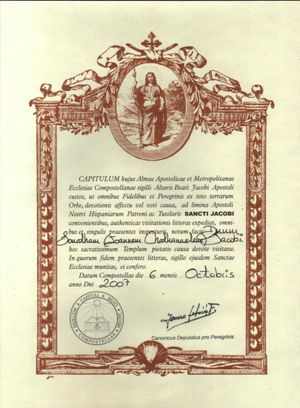 CAPITULUM hujus Almae Apostolicae et Metropolitanae
Ecclesiae Compostellanae sigilli Altaris Beati Jacobi Apostoli
custos, ut omnibus Fidelibus et Peregrinis ex toto terrarum
Orbe, devotionis affectu vel voti causa, ad limina Apostoli
Nostri Hispaniarum Patroni ac Tutelaris SANCTI JACOBI
convenientibus, authenticas visitationis litteras expediat, omni-
bus et singulis praesentes inspecturis, notum facit: Dnum
Joannem Jacobi
hoc sacratissimum Templum pietatis causa devote visitasse.
In quorum fidem praesentes litteras, sigillo ejusdem Sanctae
Ecclesiae munitas, ei confero.
Datum Compostellae die 6 mensis Octobris
anno Dni 2007
Canonicus Deputatus pro Peregrinis